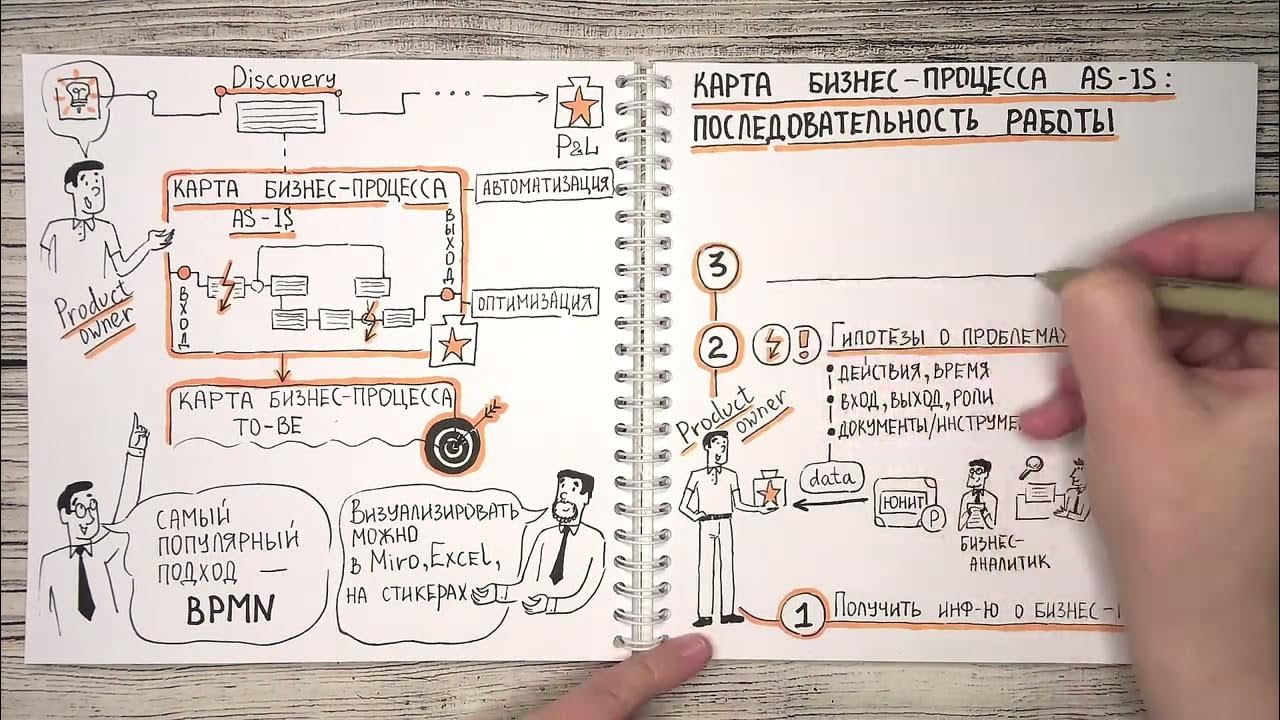 Discovery
P&L
Product
owner
КАРТА БИЗНЕС-ПРОЦЕССА
AS-IS
ВХОД
ВЫХОД
АВТОМАТИЗАЦИЯ
ОПТИМИЗАЦИЯ
КАРТА БИЗНЕС-ПРОЦЕССА
TO-BE
САМЫЙ
ПОПУЛЯРНЫЙ
ПОДХОД —
BPMN
ВИЗУАЛИЗИРОВАТЬ
МОЖНО
в Miro, Excel,
НА СТИКЕРАХ
КАРТА БИЗНЕС-ПРОЦЕССА AS-IS:
ПОСЛЕДОВАТЕЛЬНОСТЬ РАБОТЫ
3
2 ! ГИПОТЕЗЫ О ПРОБЛЕМАХ
• ДЕЙСТВИЯ, ВРЕМЯ
• ВХОД, ВЫХОД, РОЛИ
• ДОКУМЕНТЫ/ИНСТРУМЕ
Product
owner
data
ЮНИТ
P
БИЗНЕС-
АНАЛИТИК
1 ПОЛУЧИТЬ ИНФ-Ю О БИЗНЕС-